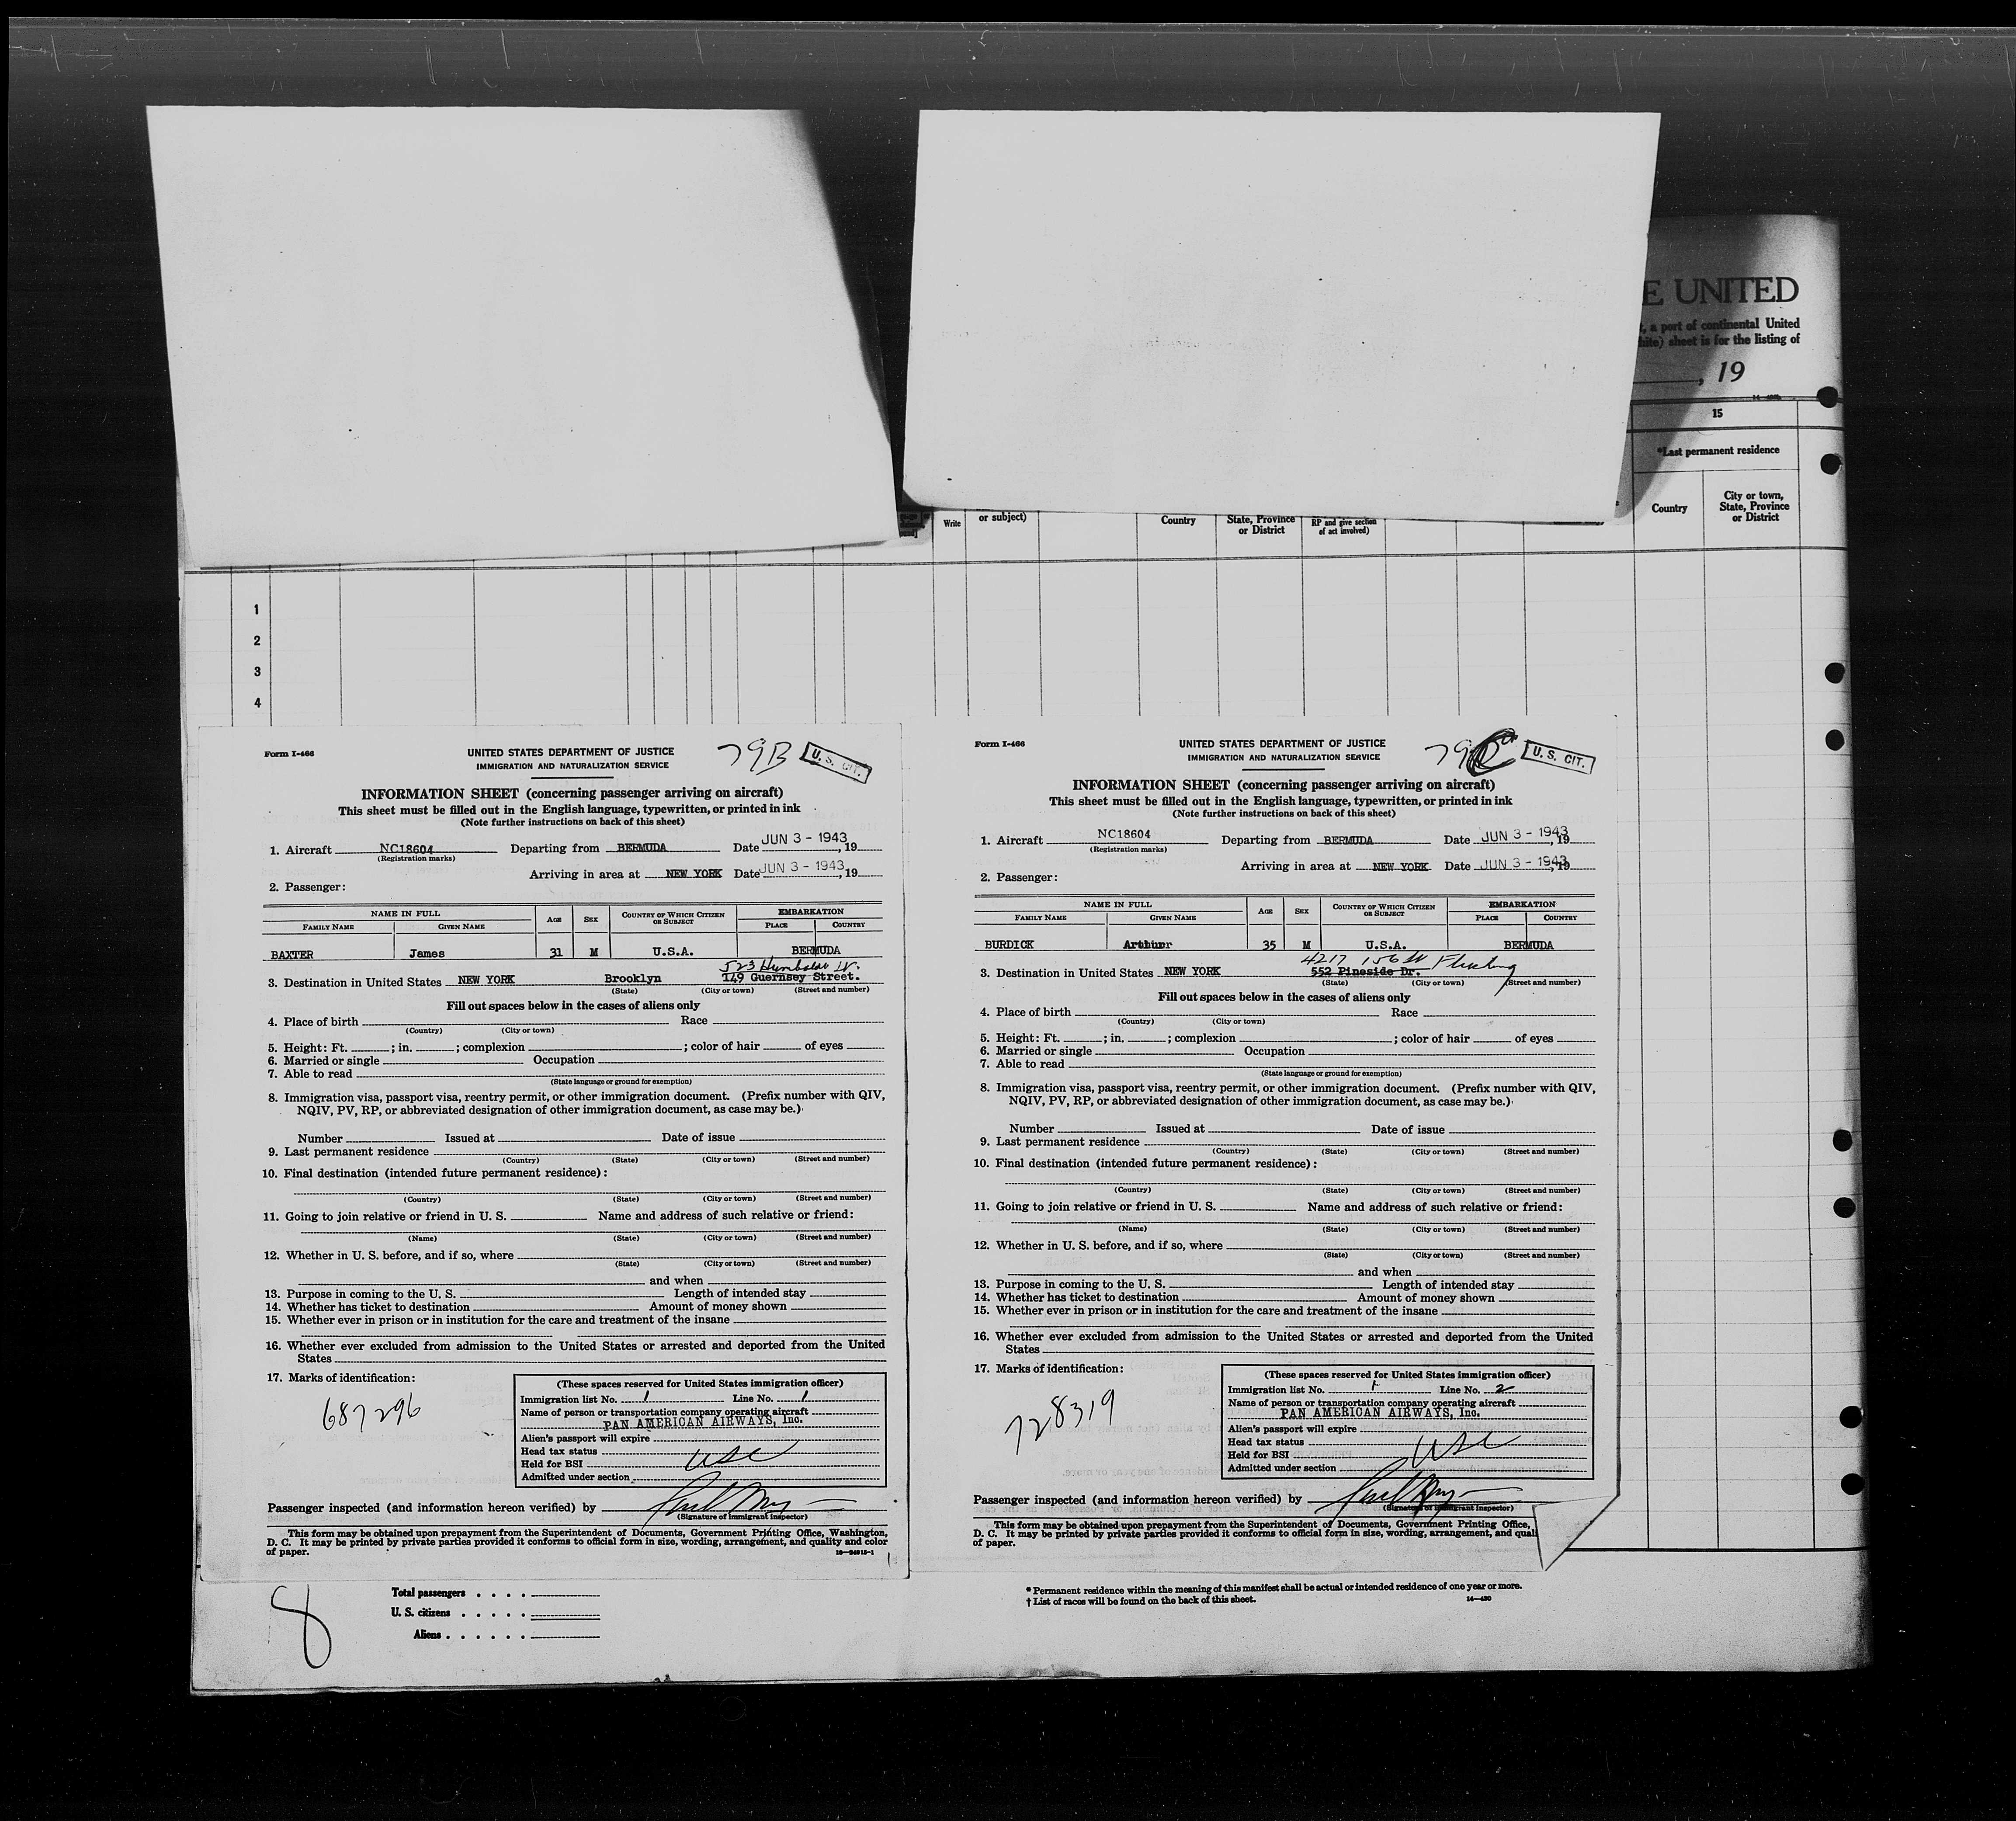 E UNITED
, a port of continental United
hite) sheet is for the listing of
, 19
15
*Last permanent residence
Country
City or town, State, Province or District
Write
or subject)
Country
State, Province or District
RP and give section of act involved)
1
2
3
4
Form I-466
UNITED STATES DEPARTMENT OF JUSTICE
79B
U. S. CIT.
IMMIGRATION AND NATURALIZATION SERVICE
INFORMATION SHEET (concerning passenger arriving on aircraft)
This sheet must be filled out in the English language, typewritten, or printed in ink
(Note further instructions on back of this sheet)
1. Aircraft NC18604 Departing from BERMUDA Date JUN 3 - 1943, 19
(Registration marks)
Arriving in area at NEW YORK Date JUN 3 - 1943, 19
2. Passenger:
NAME IN FULL AGE SEX COUNTRY OF WHICH CITIZEN OR SUBJECT EMBARKATION
FAMILY NAME GIVEN NAME PLACE COUNTRY
BAXTER James 31 M U.S.A. BERMUDA
523 Humboldt St.
3. Destination in United States NEW YORK Brooklyn 149 Guernsey Street.
(State) (City or town) (Street and number)
Fill out spaces below in the cases of aliens only
4. Place of birth Race
(Country) (City or town)
5. Height: Ft. ; in. ; complexion ; color of hair of eyes
6. Married or single Occupation
7. Able to read
(State language or ground for exemption)
8. Immigration visa, passport visa, reentry permit, or other immigration document. (Prefix number with QIV,
NQIV, PV, RP, or abbreviated designation of other immigration document, as case may be.)
Number Issued at Date of issue
9. Last permanent residence
(Country) (State) (City or town) (Street and number)
10. Final destination (intended future permanent residence):
(Country) (State) (City or town) (Street and number)
11. Going to join relative or friend in U. S. Name and address of such relative or friend:
(Name) (State) (City or town) (Street and number)
12. Whether in U. S. before, and if so, where
(State) (City or town) (Street and number)
and when
13. Purpose in coming to the U. S. Length of intended stay
14. Whether has ticket to destination Amount of money shown
15. Whether ever in prison or in institution for the care and treatment of the insane
16. Whether ever excluded from admission to the United States or arrested and deported from the United
States
17. Marks of identification:
687296
(These spaces reserved for United States immigration officer)
Immigration list No. 1 Line No. 1
Name of person or transportation company operating aircraft
PAN AMERICAN AIRWAYS, Inc.
Alien's passport will expire
Head tax status
Held for BSI USC
Admitted under section
Passenger inspected (and information hereon verified) by
(Signature of Immigrant Inspector)
This form may be obtained upon prepayment from the Superintendent of Documents, Government Printing Office, Washington,
D. C. It may be printed by private parties provided it conforms to official form in size, wording, arrangement, and quality and color
of paper.
16—24915-1
Form I-466
UNITED STATES DEPARTMENT OF JUSTICE
79
U. S. CIT.
IMMIGRATION AND NATURALIZATION SERVICE
INFORMATION SHEET (concerning passenger arriving on aircraft)
This sheet must be filled out in the English language, typewritten, or printed in ink
(Note further instructions on back of this sheet)
1. Aircraft NC18604 Departing from BERMUDA Date JUN 3 - 1943, 19
(Registration marks)
Arriving in area at NEW YORK Date JUN 3 - 1943, 19
2. Passenger:
NAME IN FULL AGE SEX COUNTRY OF WHICH CITIZEN OR SUBJECT EMBARKATION
FAMILY NAME GIVEN NAME PLACE COUNTRY
BURDICK Arthur 35 M U.S.A. BERMUDA
4217 156 St Flushing
3. Destination in United States NEW YORK 552 Pineside Dr.
(State) (City or town) (Street and number)
Fill out spaces below in the cases of aliens only
4. Place of birth Race
(Country) (City or town)
5. Height: Ft. ; in. ; complexion ; color of hair of eyes
6. Married or single Occupation
7. Able to read
(State language or ground for exemption)
8. Immigration visa, passport visa, reentry permit, or other immigration document. (Prefix number with QIV,
NQIV, PV, RP, or abbreviated designation of other immigration document, as case may be.)
Number Issued at Date of issue
9. Last permanent residence
(Country) (State) (City or town) (Street and number)
10. Final destination (intended future permanent residence):
(Country) (State) (City or town) (Street and number)
11. Going to join relative or friend in U. S. Name and address of such relative or friend:
(Name) (State) (City or town) (Street and number)
12. Whether in U. S. before, and if so, where
(State) (City or town) (Street and number)
and when
13. Purpose in coming to the U. S. Length of intended stay
14. Whether has ticket to destination Amount of money shown
15. Whether ever in prison or in institution for the care and treatment of the insane
16. Whether ever excluded from admission to the United States or arrested and deported from the United
States
17. Marks of identification:
728319
(These spaces reserved for United States immigration officer)
Immigration list No. 1 Line No. 2
Name of person or transportation company operating aircraft
PAN AMERICAN AIRWAYS, Inc.
Alien's passport will expire
Head tax status
Held for BSI USC
Admitted under section
Passenger inspected (and information hereon verified) by
(Signature of Immigrant Inspector)
This form may be obtained upon prepayment from the Superintendent of Documents, Government Printing Office,
D. C. It may be printed by private parties provided it conforms to official form in size, wording, arrangement, and quali
of paper.
8
Total passengers . . . .
U. S. citizens . . . . .
Aliens . . . . . .
* Permanent residence within the meaning of this manifest shall be actual or intended residence of one year or more.
† List of races will be found on the back of this sheet.
14—430